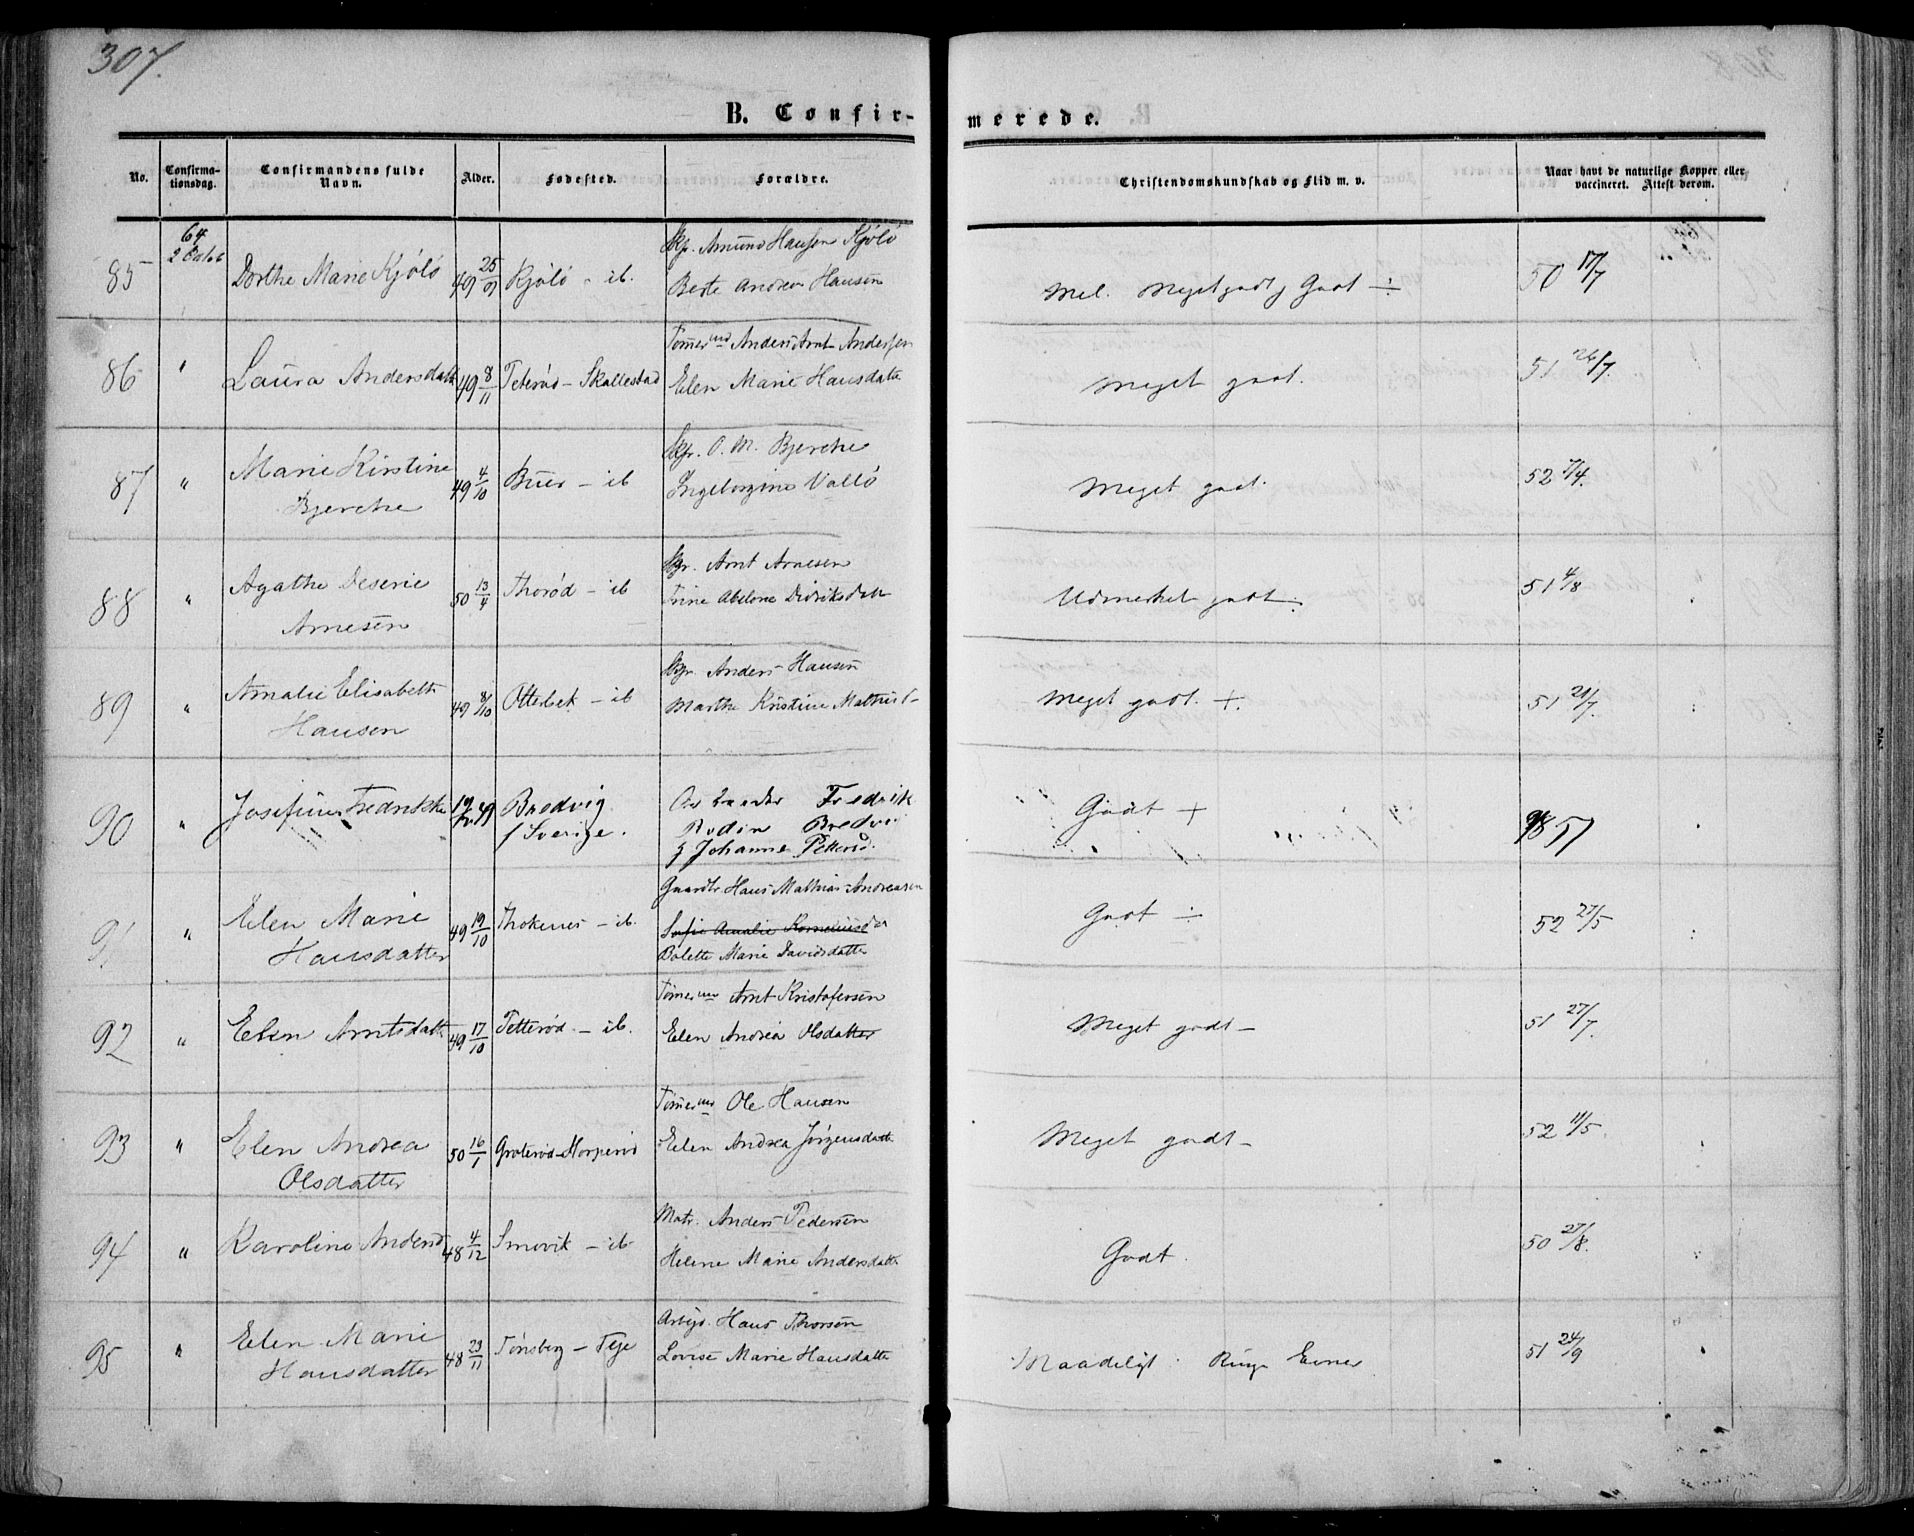 307.
B. Confirmerede.
No. Confirmationsdag. Confirmandens fulde Navn. Alder. Fødested. Forældre. Christendomskundskab og Flid m. v. Naar havt de naturlige Kopper eller vaccineret. Attest derom.
64
2 Octob
85 Dorthe Marie Kjølø 49 25/9 Kjølø - ib. Skpr. Amund Hansen Kjølø
Berte Andrea Hansen Mel. Meget godt og Godt ÷ 50 17/7
86 " Laura Andersdatt 49 8/11 Teterød - Skallestad Tømermd Anders Arnt Andersen
Elen Marie Hansdatt Meget godt. 51 26/7.
87 " Marie Kirstine
Bjerche 49 4/10 Buer - ib Skpr. O. M. Bjerche
Ingeborgine Vallø Meget godt. 52 7/4.
88 " Agathe Deserie
Arnesen 50 13/4 Thorød - ib Skpr. Arnt Arnesen
Trine Abelone Didriksdatt Udmerket godt. 51 4/8
89 " Amalie Elisabeth
Hansen 49 8/10 Otterbek - ib Skpr. Anders Hansen
Marthe Kristine Mathisd Meget godt. +. 51 21/7.
90 " Josefine Fredrikke 49 Bredvig
i Sverige. Fredrik
Bredvi
& Johanne Petters. Godt + 51
91 " Elen Marie
Hansdatter 49 19/10 Thokenes - ib. Gaardbr Hans Mathias Andreasen
Sofie Amalie Korneliusdr
Bolette Marie Davidsdatte Godt ÷ 52 27/5
92 " Elen Arntsdatt 49 17/10 Tetterød - ib. Tømermd Arnt Kristofersen
Elen Andrea Olsdatter Meget godt - 51 27/7.
93 " Elen Andrea
Olsdatter 50 16/1 Groterød - Horperød Tømermd Ole Hansen
Elen Andrea Jørgensdatt Meget godt - 52 11/5
94 " Karoline Andersd 48 4/12 Smovik - ib Matr. Anders Pedersen
Helene Marie Andersdatt Godt. 50 27/8.
95 " Elen Marie
Hansdatter 48 23/11 Tønsberg - Teje Arbejd. Hans Thorsen
Lovise Marie Hansdatte Maadeligt. Ringe Evner 51 24/9